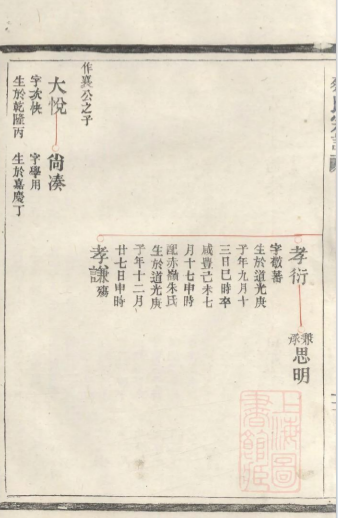 孝衍
字敬蕃
生於道光庚
子年九月十
三日巳時卒
咸豐己未七
月十七申時
配赤嶺朱氏
生於道光庚
子年十二月
廿七日申時
兼承
思明
孝謙殤
作襄公之子
大悅
字次快
生於乾隆丙
尙湊
字學用
生於嘉慶丁
上海圖
書館藏